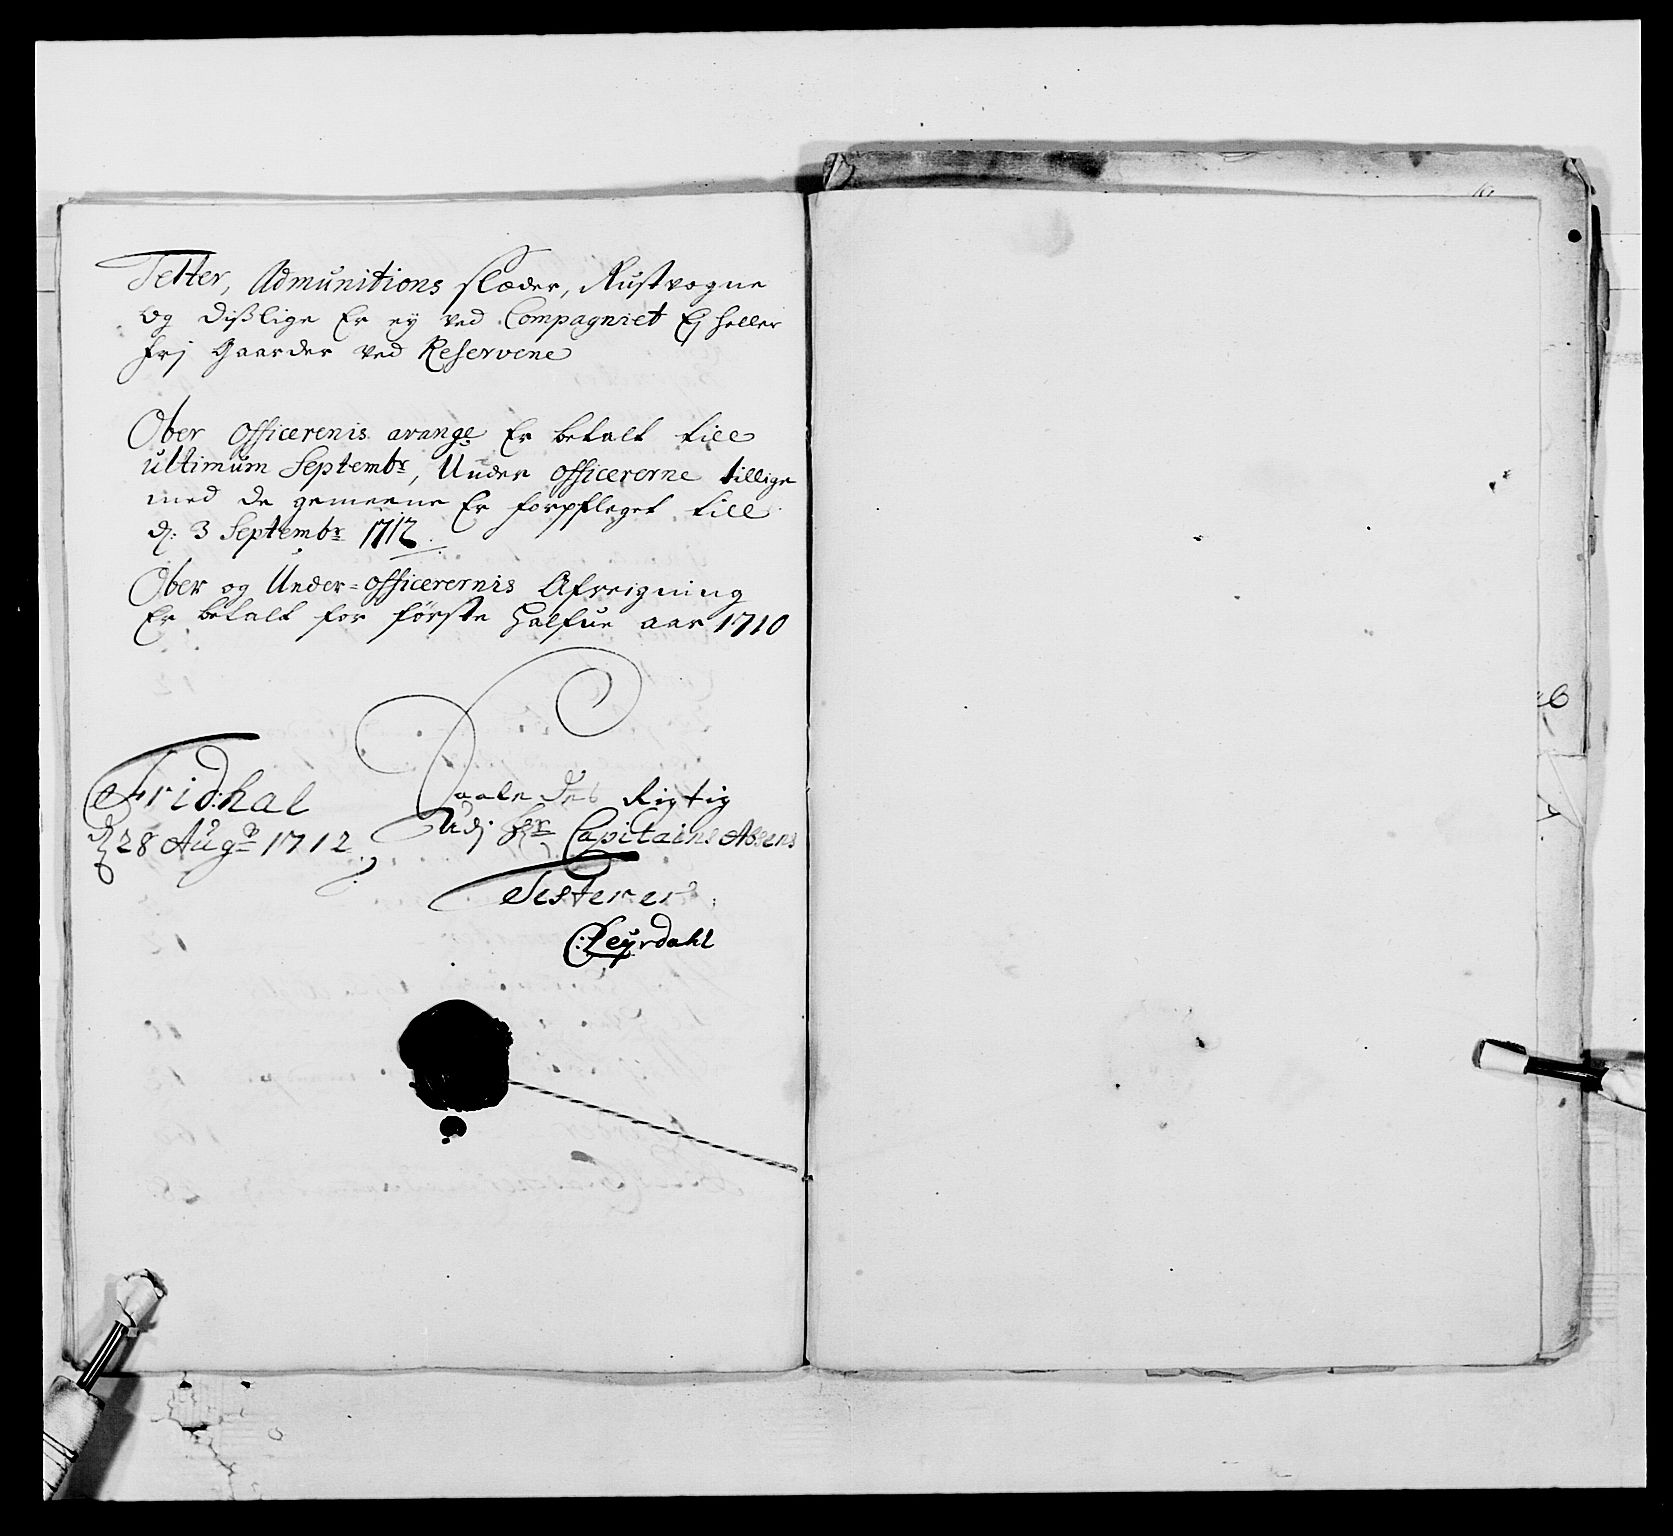 Telter, Admunitions slæder, Rustvogne
og dißlige Er ey ved Compagniet Ej heller
frj Gaarder ved Reservene
Ober Officerenis avange Er betalt till
ultimum Septembr, Under officererne tillige
med de gemeene Er forpfleget till
d: 3 Septembr 1712
Ober og Under-officerernis Afreigning
Er betalt for første halfue aar 1710
Fridhal
d 28 Augs 1712
Saaledes Rigtig
Udj Hr Capitains Absens
Testerer
C: Leyrdahl